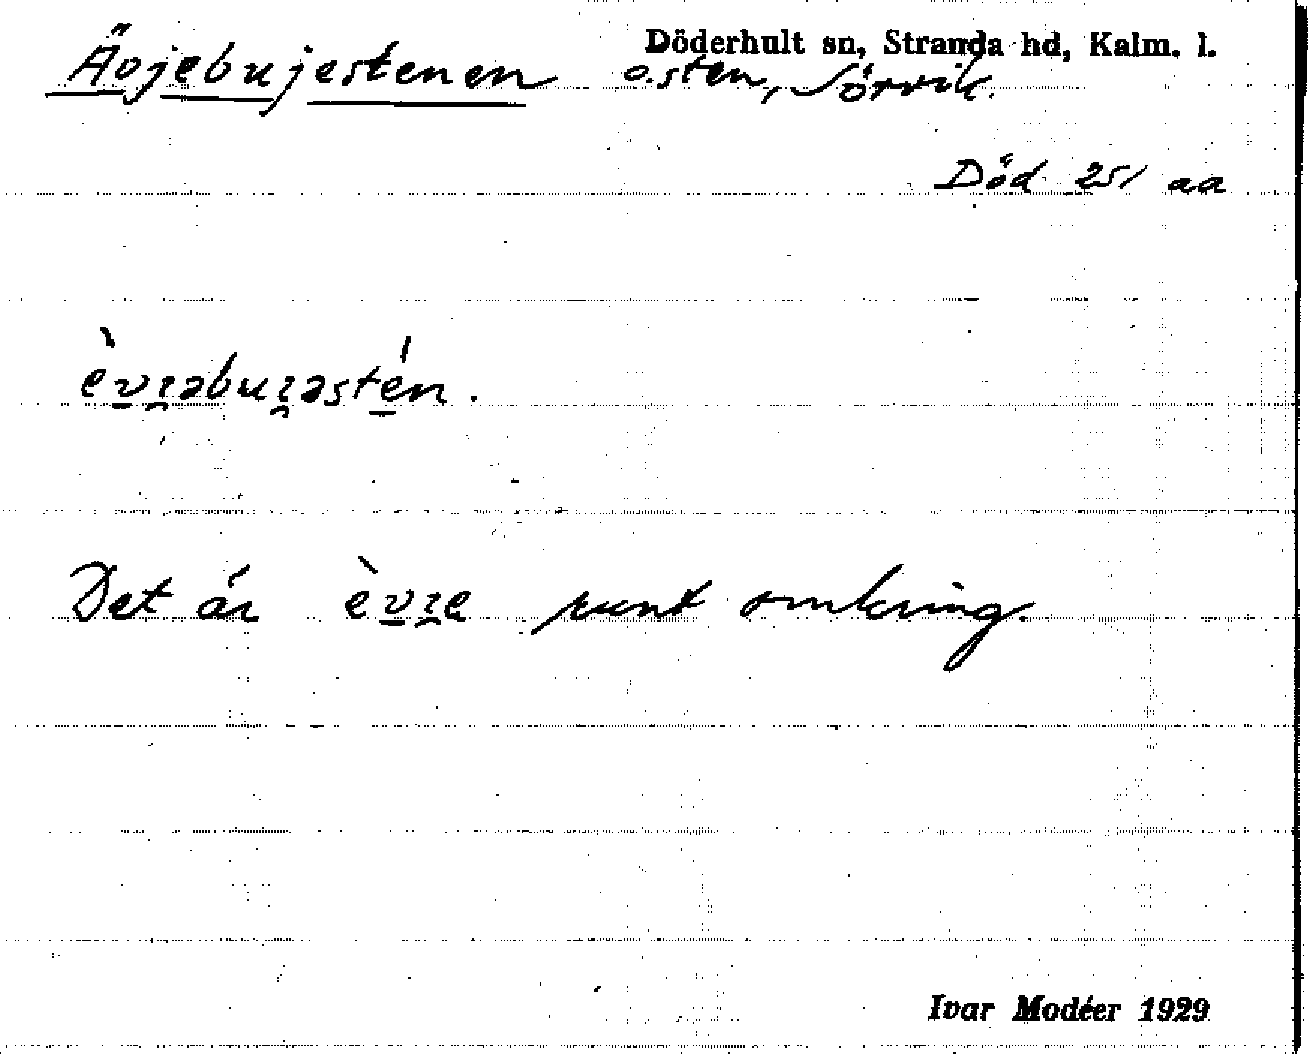 Döderhult sn, Stranda hd, Kalm. l.
Äojebujestenen o.sten, Sörvik.
Död 251 aa
Det är runt omkring.
Ivar Modéer 1929